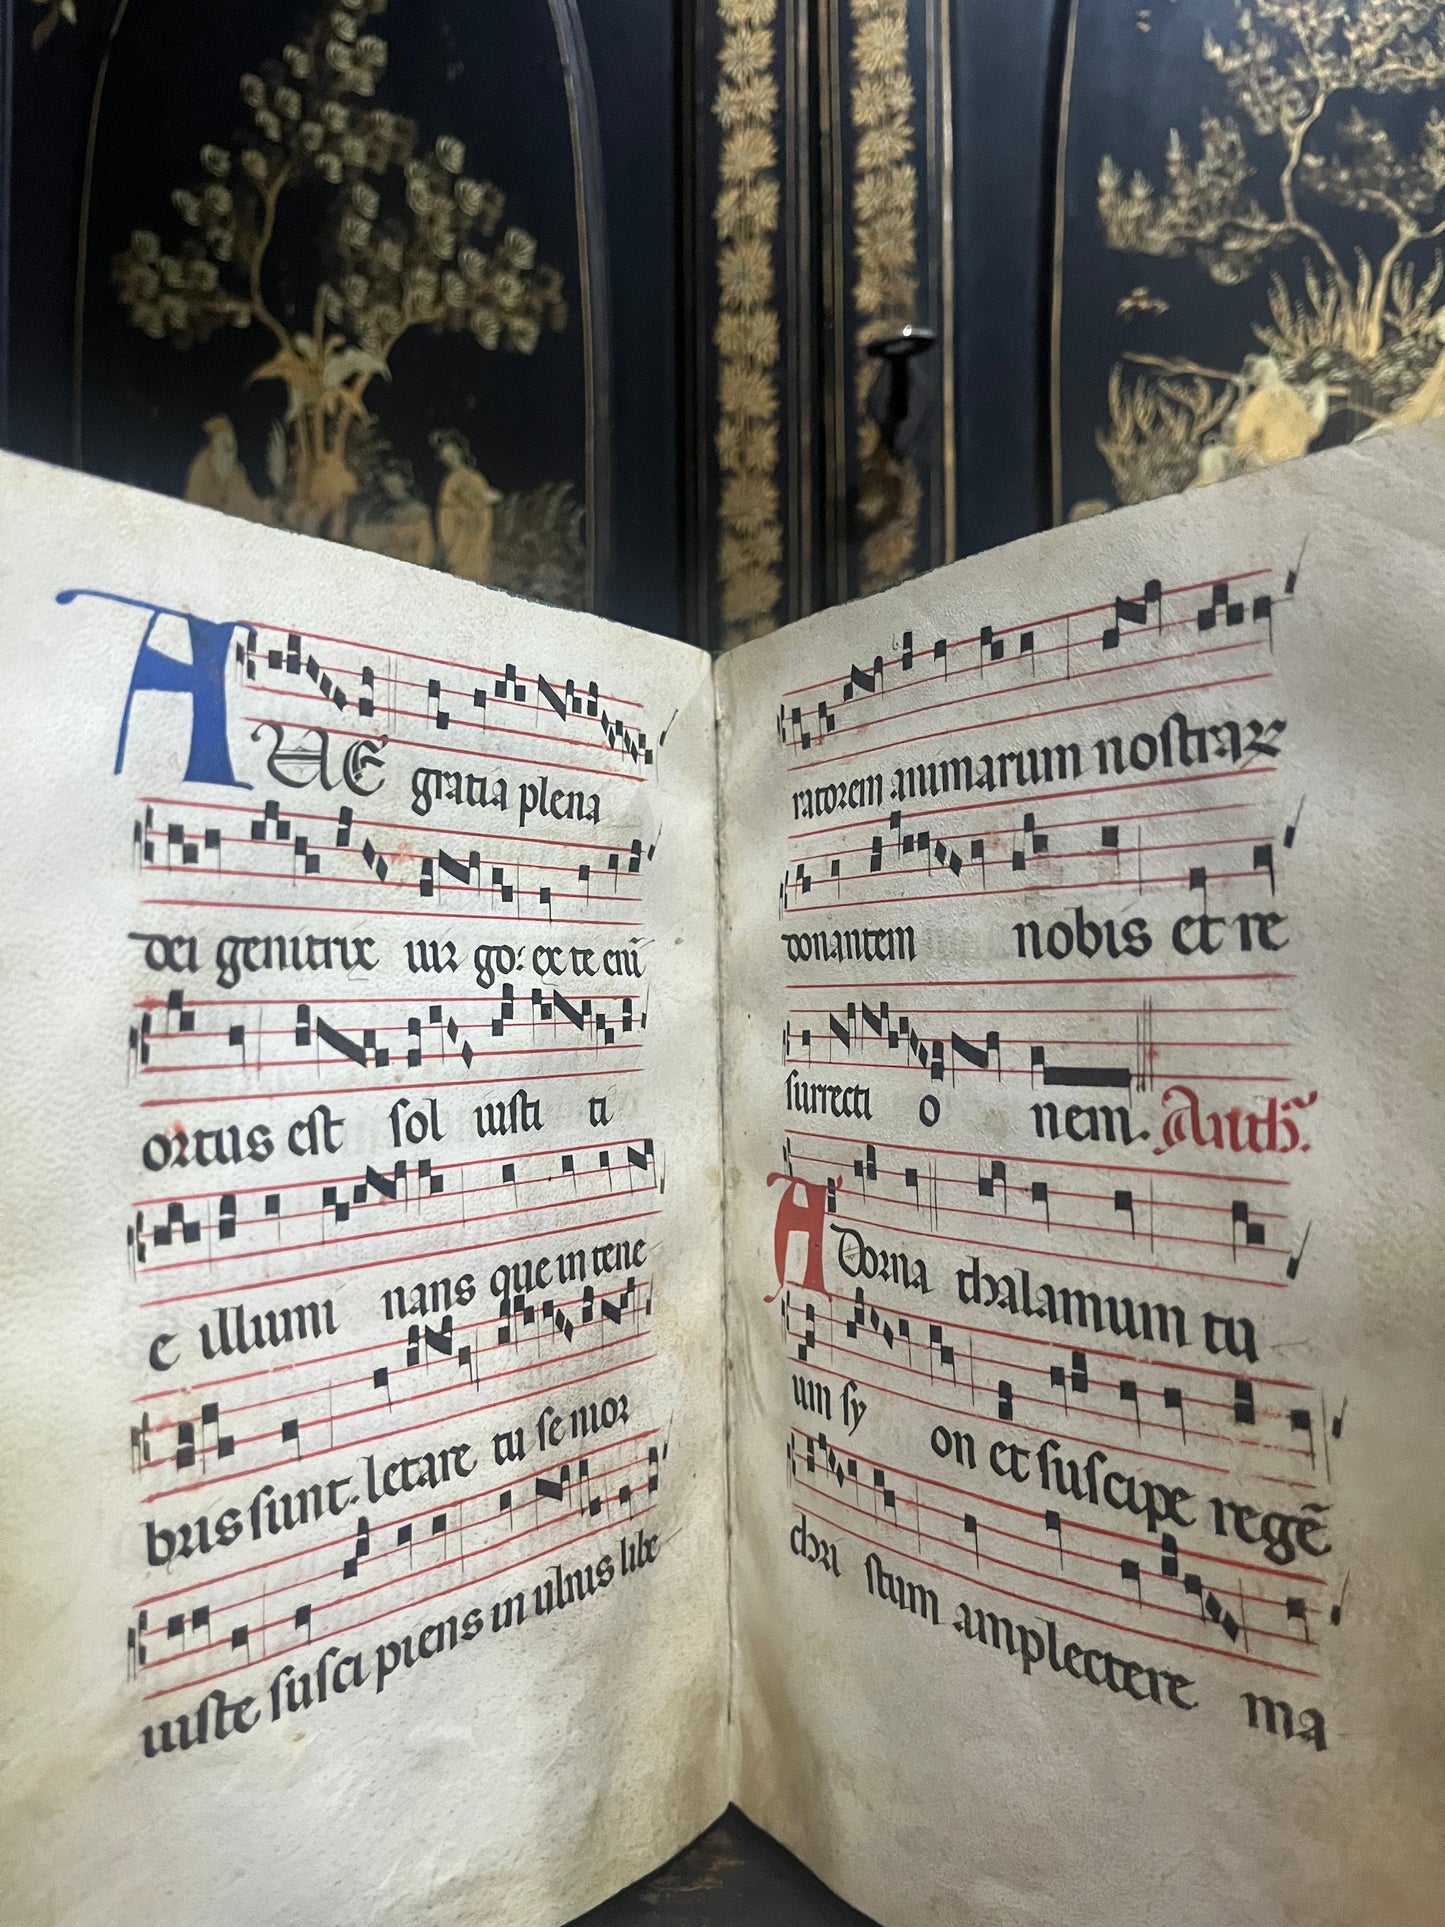 AUE gratia plena
dei genitrix uir go: ex te eni̅
ortus est sol iusti ti
e illumi nans que in tene
bris sunt. letare tu se nior
iuste susci piens in ulnis libe
ratorem animarum nostraꝝ
donantem nobis et re
surrecti o nem. Anth̅.
Adorna thalamum tu
um sy on et suscipe rege̅
chri stum amplectere ma